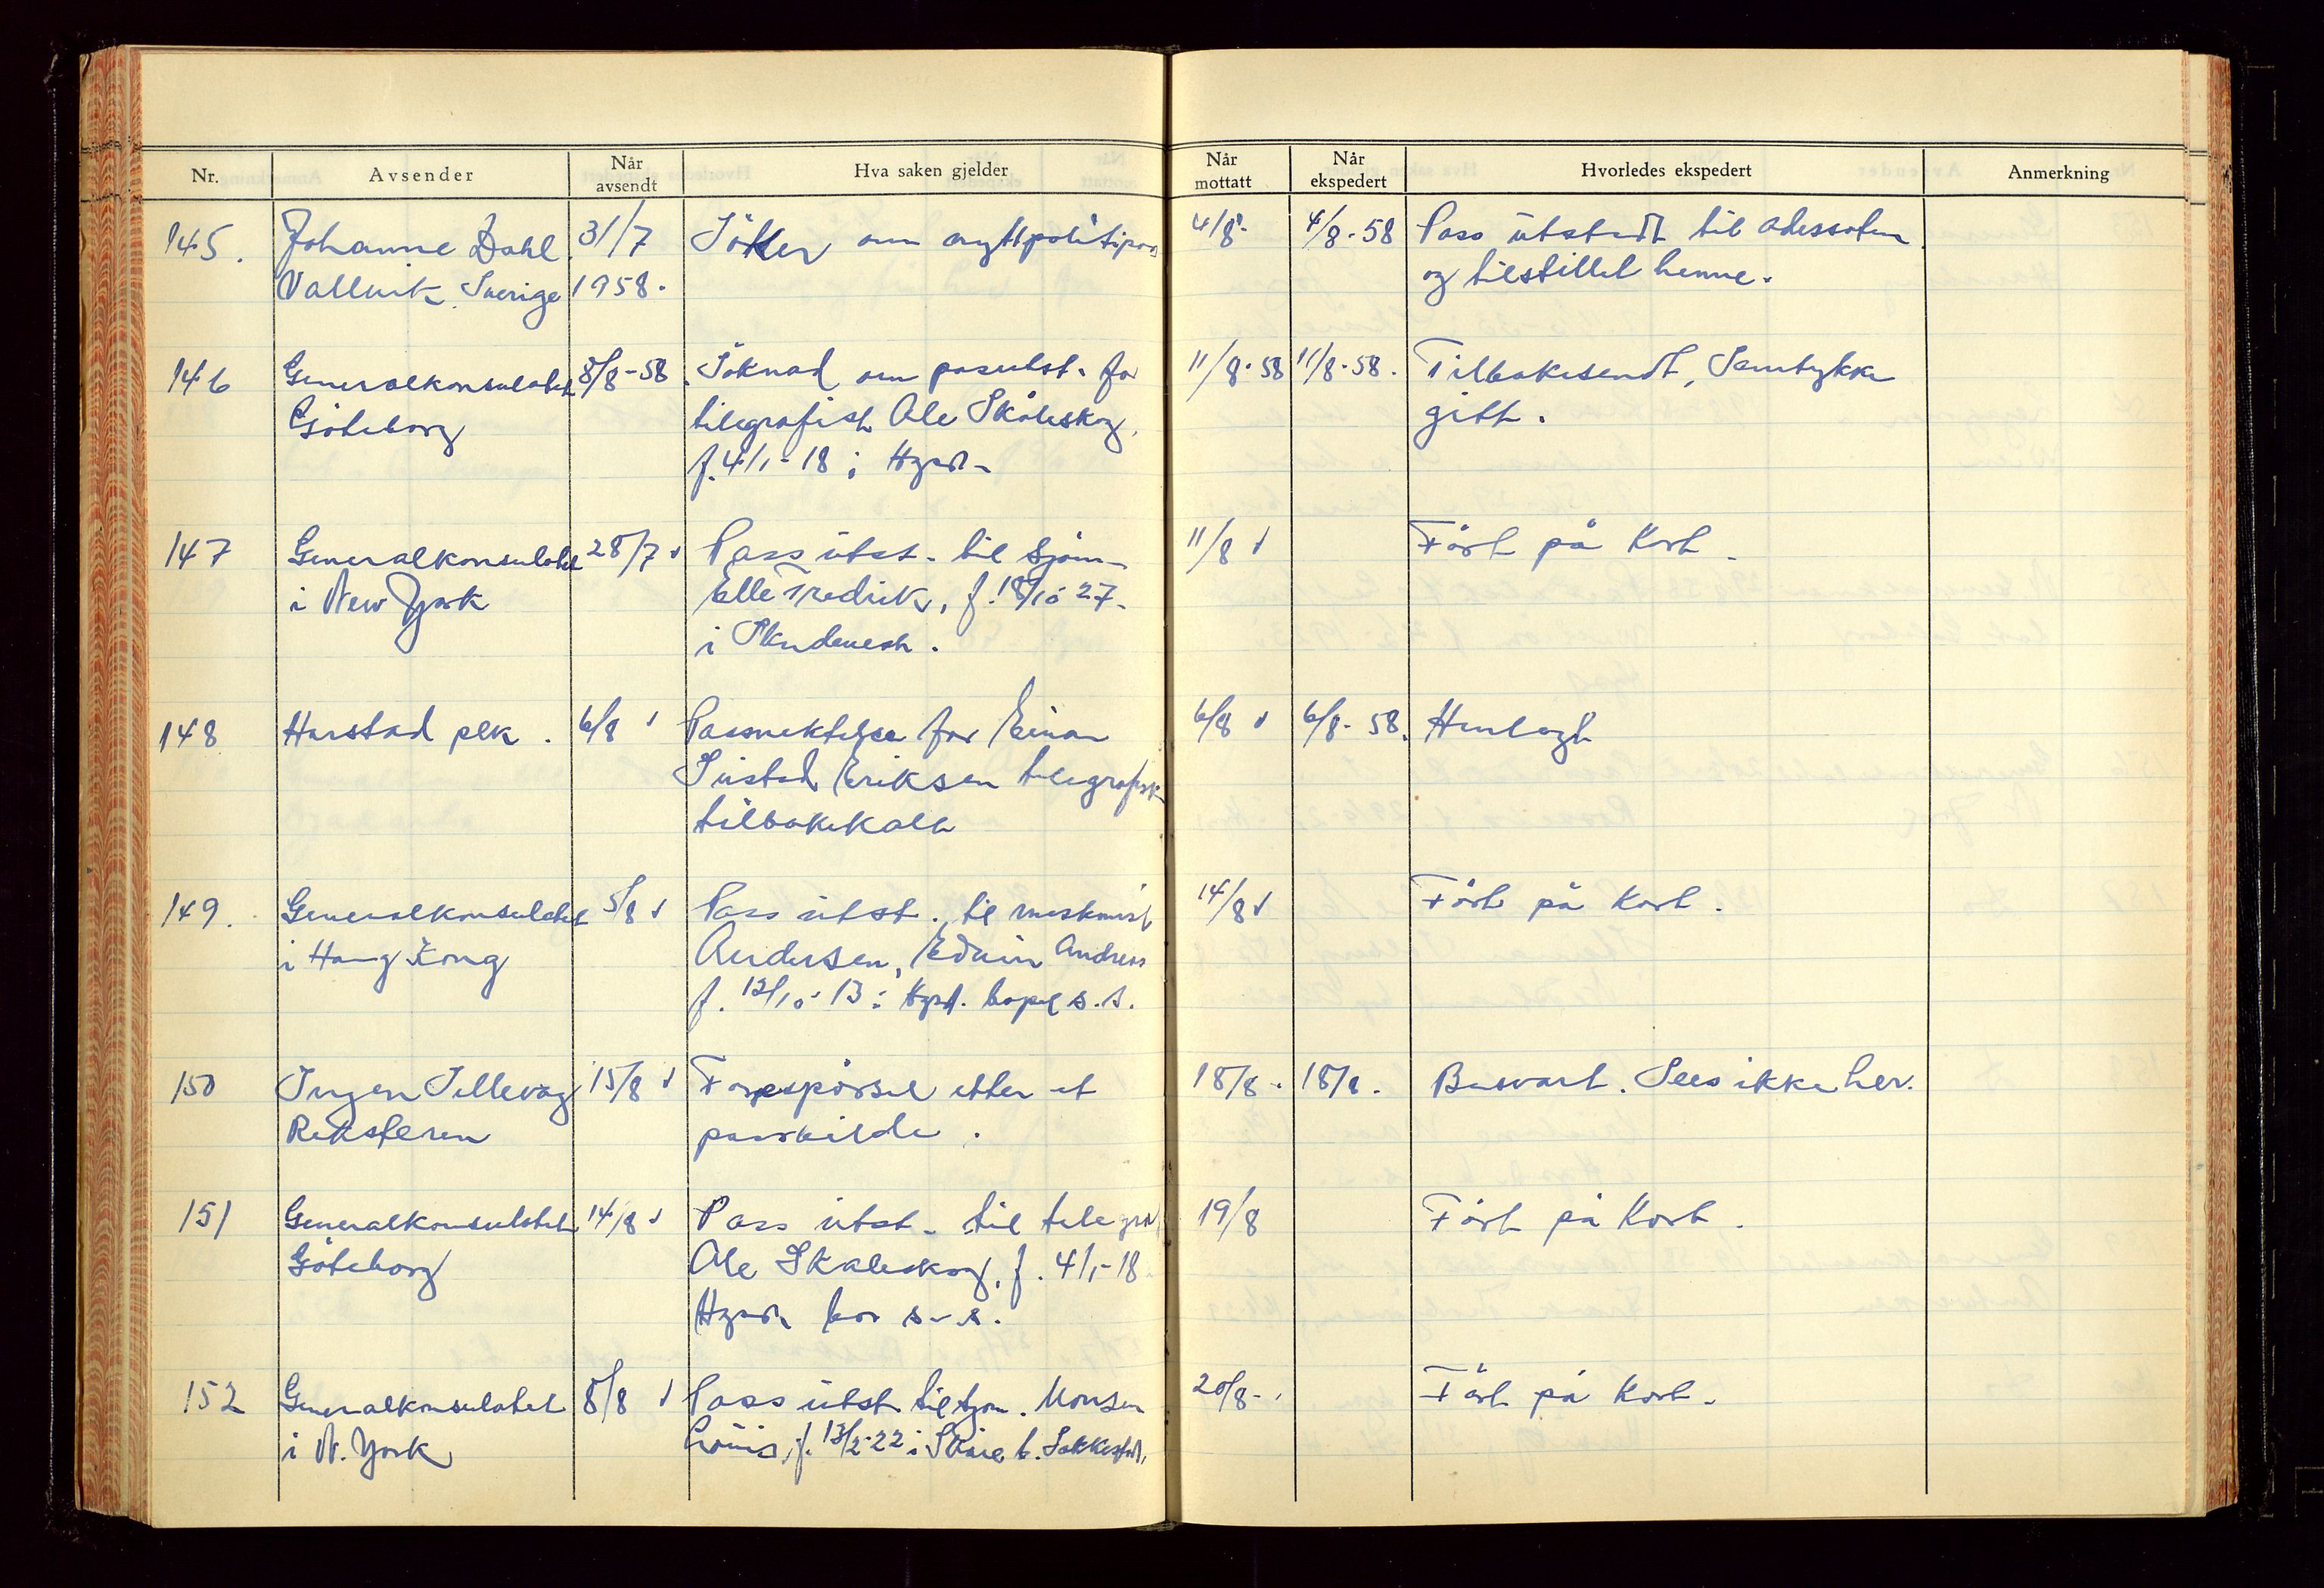 Nr. Avsender Når avsendt Hva saken gjelder Når mottatt Når ekspedert Hvorledes ekspedert Anmerkning
145. Johanne Dahl 31/7 Söker om nytt politipass 4/8- 4/8-58 Pass utstedt til adressaten
Vallvik Sverige 1958. og tilstillet henne.
146 Generalkonsulatet 8/8-58 Söknad om passutst. for 11/8-58 11/8-58. Tilbakesendt, Samtykke
Göteborg telegrafist Ale Skåleskog, gitt.
f. 4/1-18 i Hgsd-
147 Generalkonsulatet 28/7 Pass utst. til Sjöm- 11/8 Fört på Kort.
i New York Fredrik, f. 18/10-27-
i Skudenesh.
148 Harstad plk. 6/8 Passnektelse for Einar 6/8 6/8-58. Henlagt
Eriksen telegrafisk
tilbakekalt
149. Generalkonsulatet 5/8 Pass utst. til maskinist 14/8 Fört på Kort.
i Hong Kong Andersen, Edvin Andreas
f. 12/10-13 i Hgsd. bopel s.s.
150 Inger Tillevåg 15/8 Forespörsel etter et 18/8- 18/8. Besvart. Sees ikke her.
Reksteren passbilde.
151 Generalkonsulatet 14/8 Pass utst. til telegraf 19/8 Fört på Kort.
Göteborg Ale Skaleskog, f. 4/1-18
Hgsd. bor s-s.
152 Generalkonsulatet 8/8 Pass utst til sjøm. Monsen 20/8- Fört på Kort.
i N. York f. 13/2-22 i Skåre b.